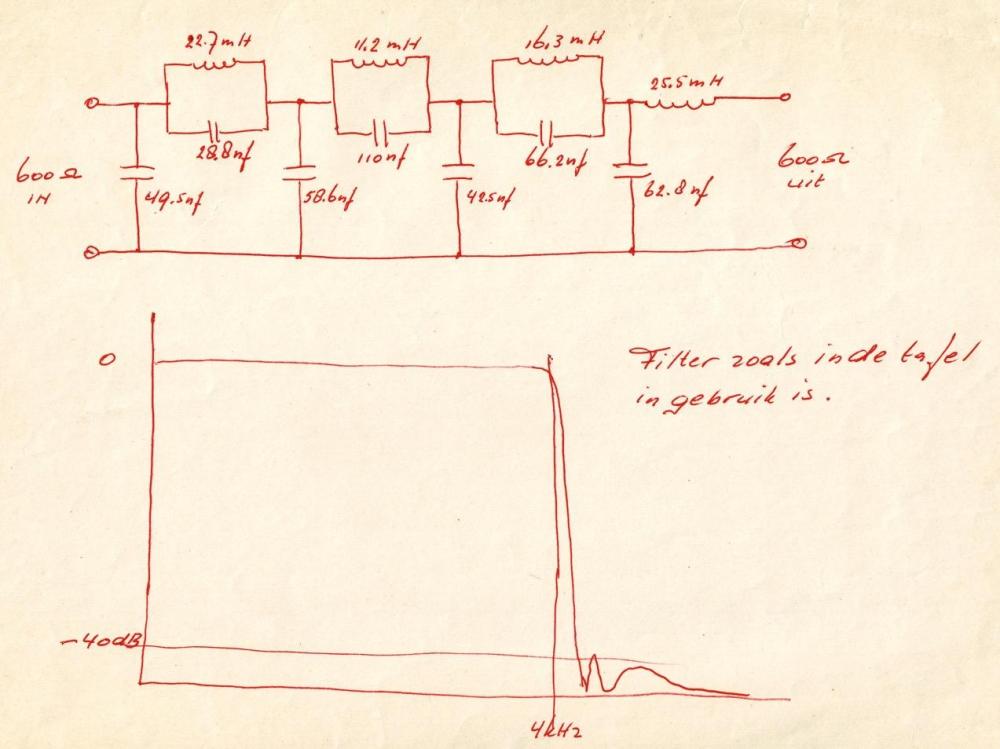 22.7mH
11.2 mH
16,3 mH
25.5mH
28.8nf
110nf
66.2nf
600Ω
IN
49.5nf
58.6nf
42.5nf
62.8nf
600Ω
uit
0
Filter zoals in de tafel
in gebruik is.
-40dB
4kHz